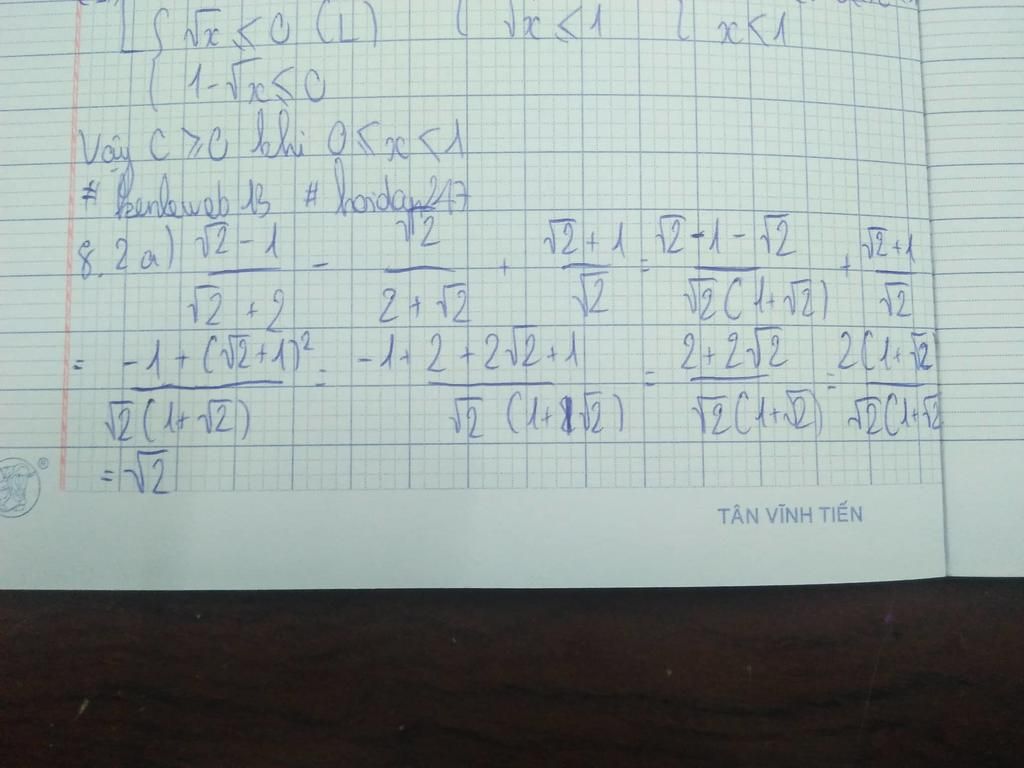 √x ≤ 0 (L) √x ≤ 1 x < 1
1 - √x ≤ 0
Vậy C ≥ 0 khi 0 ≤ x < 1
# kenleweb13 # hoidap247
8.2 a) (√2 - 1)/(√2 + 2) - √2/(2 + √2) + (√2 + 1)/√2 = (√2 - 1 - √2)/(√2(1 + √2)) + (√2 + 1)/√2
= (-1 + (√2 + 1)²)/(√2(1 + √2)) = (-1 + 2 + 2√2 + 1)/(√2(1 + √2)) = (2 + 2√2)/(√2(1 + √2)) = 2(1 + √2)/(√2(1 + √2
= √2
TÂN VĨNH TIẾN